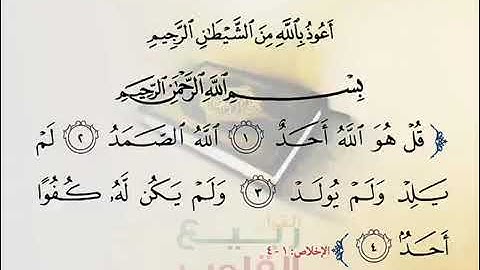 أَعُوذُ بِاللَّهِ مِنَ الشَّيْطَانِ الرَّجِيمِ
بِسْمِ اللَّهِ الرَّحْمَٰنِ الرَّحِيمِ
﴿ قُلْ هُوَ اللَّهُ أَحَدٌ ١ اللَّهُ الصَّمَدُ ٢ لَمْ
يَلِدْ وَلَمْ يُولَدْ ٣ وَلَمْ يَكُن لَّهُۥ كُفُوًا
أَحَدٌۢ ٤ ﴾ الإخلاص: ١ - ٤
ربيع
القلوب